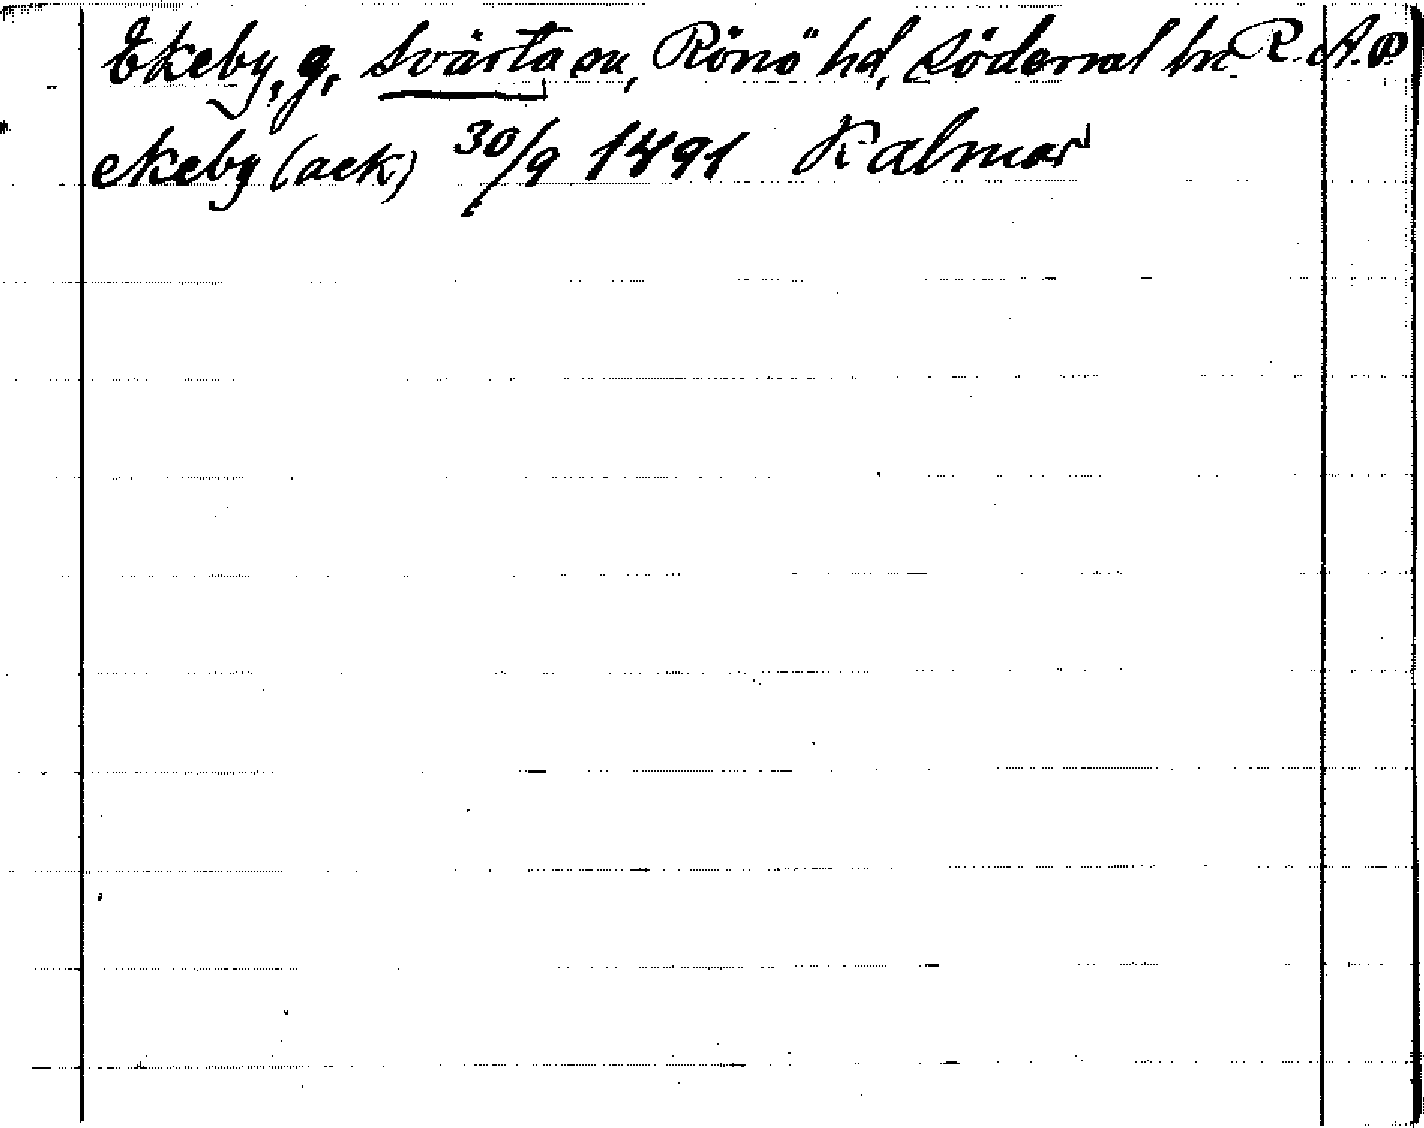 Ekeby, g, Svärta sn, Rönö hd, Södermanl ln R.A.P
ekeby (ack) 30/9 1491 Kalmar